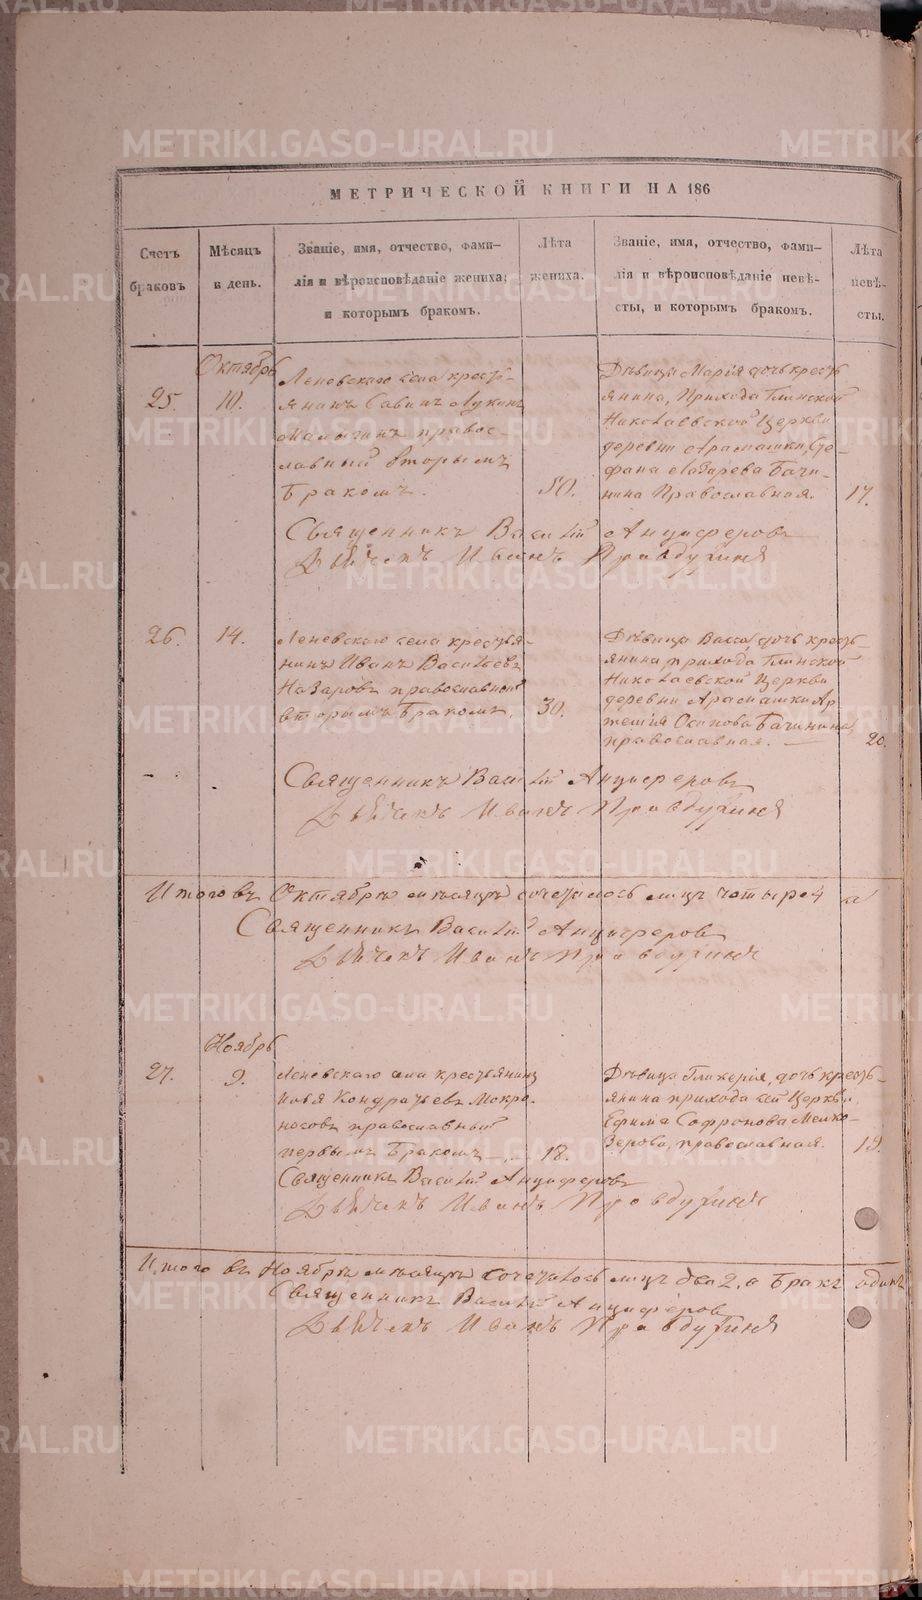 МЕТРИЧЕСКОЙ КНИГИ НА 186
Счетъ
браковъ
Мѣсяцъ
и день.
Званіе, имя, отчество, фами-
лія и вѣроисповѣданіе жениха;
и которымъ бракомъ.
Лѣта
жениха.
Званіе, имя, отчество, фами-
лія и вѣроисповѣданіе невѣ-
сты, и которымъ бракомъ.
Лѣта
невѣ-
сты.
Октябрь
25. 10.
Леневскаго села кресть-
янинъ Савинъ Лукинъ
православ-
лавный вторымъ
бракомъ. 50.
Дѣвица Марія дочь кресть
янина, Прихода Глинской
Николаевской Церкви
деревни Арамашки, Сте-
фана Лазарева Бачи-
нина Православная. 17.
Священникъ Василій Анциферовъ
Дьячекъ Иванъ Правдухинъ
26. 14.
Леневскаго села крестья-
нинъ Иванъ Васильевъ
Назаровъ православный
вторымъ бракомъ. 30.
Дѣвица Васса, дочь кресть-
янина, прихода Глинской
Николаевской Церкви
деревни Арамашки Ар
темія Осипова Бачинина,
православная. 20.
Священникъ Василій Анциферовъ
Дьячекъ Иванъ Правдухинъ
Итого въ Октябрѣ мѣсяцѣ сочеталось лицъ четыре 4 а
Священникъ Василій Анциферовъ
Дьячекъ Иванъ Правдухинъ
Ноябрь
27. 9.
Леневскаго села крестьянинъ
Илья Кондратьевъ Мокро-
носовъ православный
первымъ бракомъ. 18.
Дѣвица Гликерія, дочь кресть-
янина прихода сей Церкви,
Ефима Софронова Мелко-
зерова, православная. 19.
Священникъ Василій Анциферовъ
Дьячекъ Иванъ Правдухинъ
Итого въ Ноябрѣ мѣсяцѣ сочеталось лицъ два 2, а бракъ одинъ
Священникъ Василій Анциферовъ
Дьячекъ Иванъ Правдухинъ
METRIKI.GASO-URAL.RU